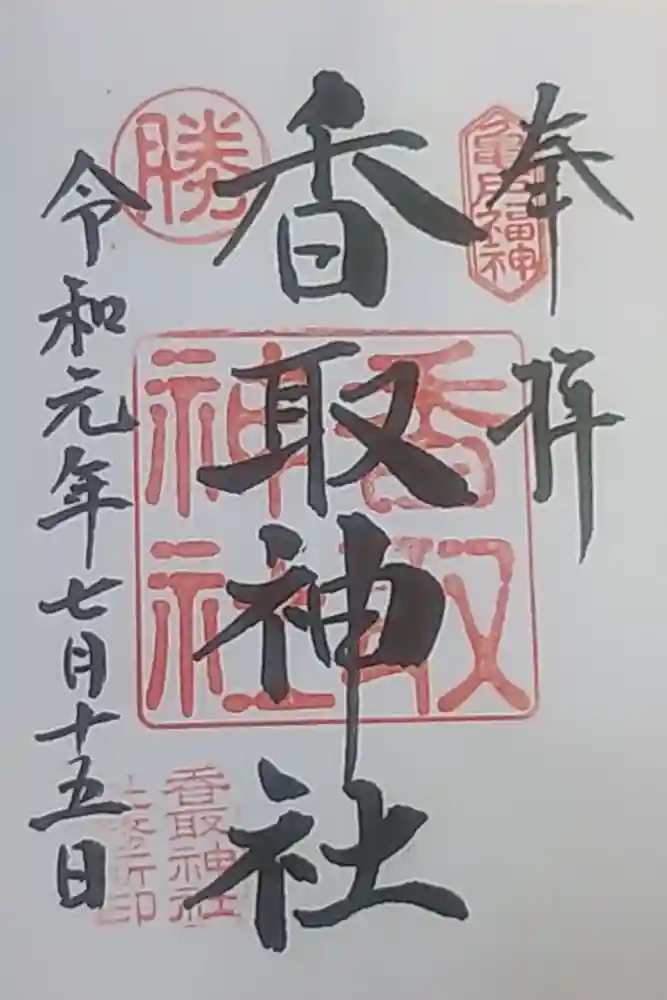 奉拝
亀戸福神
香取神社
香取神社
勝
令和元年七月十五日
香取神社
社務所印